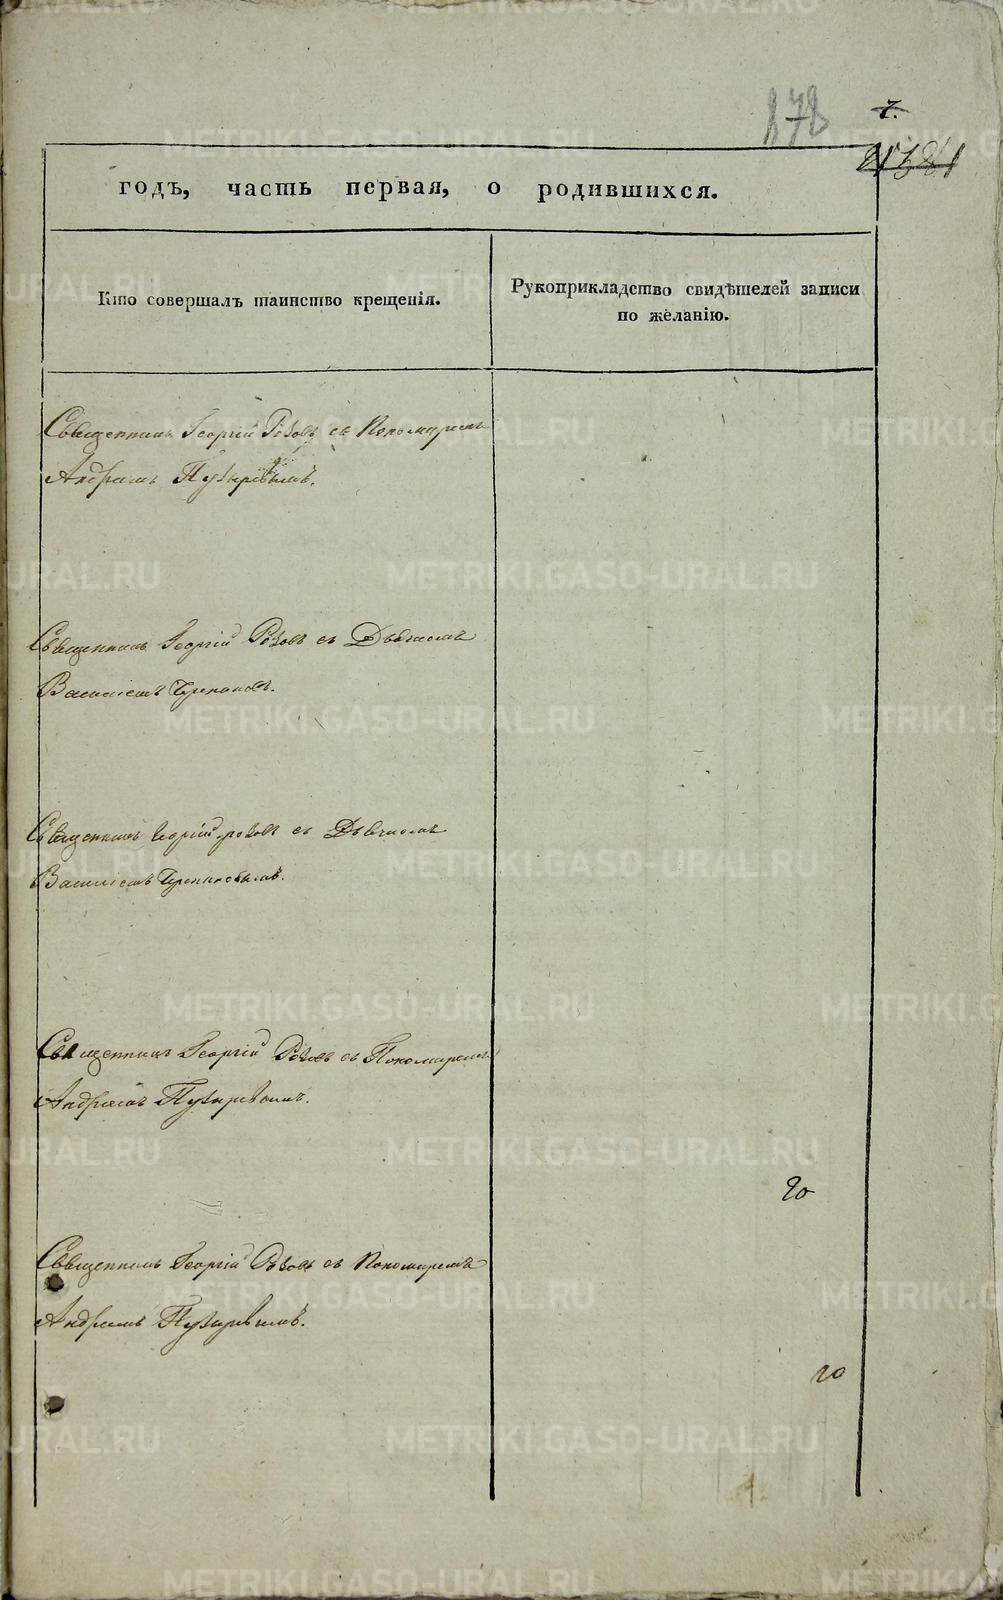 878
7.
годъ, часть первая, о родившихся.
Кто совершалъ таинство крещенія.
Рукоприкладство свидѣтелей записи
по желанію.
Священникъ Георгій Розовъ съ Пономаремъ
Андреемъ Пузыревымъ.
Священникъ Георгій Розовъ съ Дьячкомъ
Василіемъ
Священникъ Георгій розовъ съ Дьячкомъ
Василіемъ
Священникъ Георгій Розовъ съ Пономаремъ
Андреемъ Пузыревымъ.
20
Священникъ Георгій Розовъ съ Пономаремъ
Андреемъ Пузыревымъ.
20
METRIKI.GASO-URAL.RU